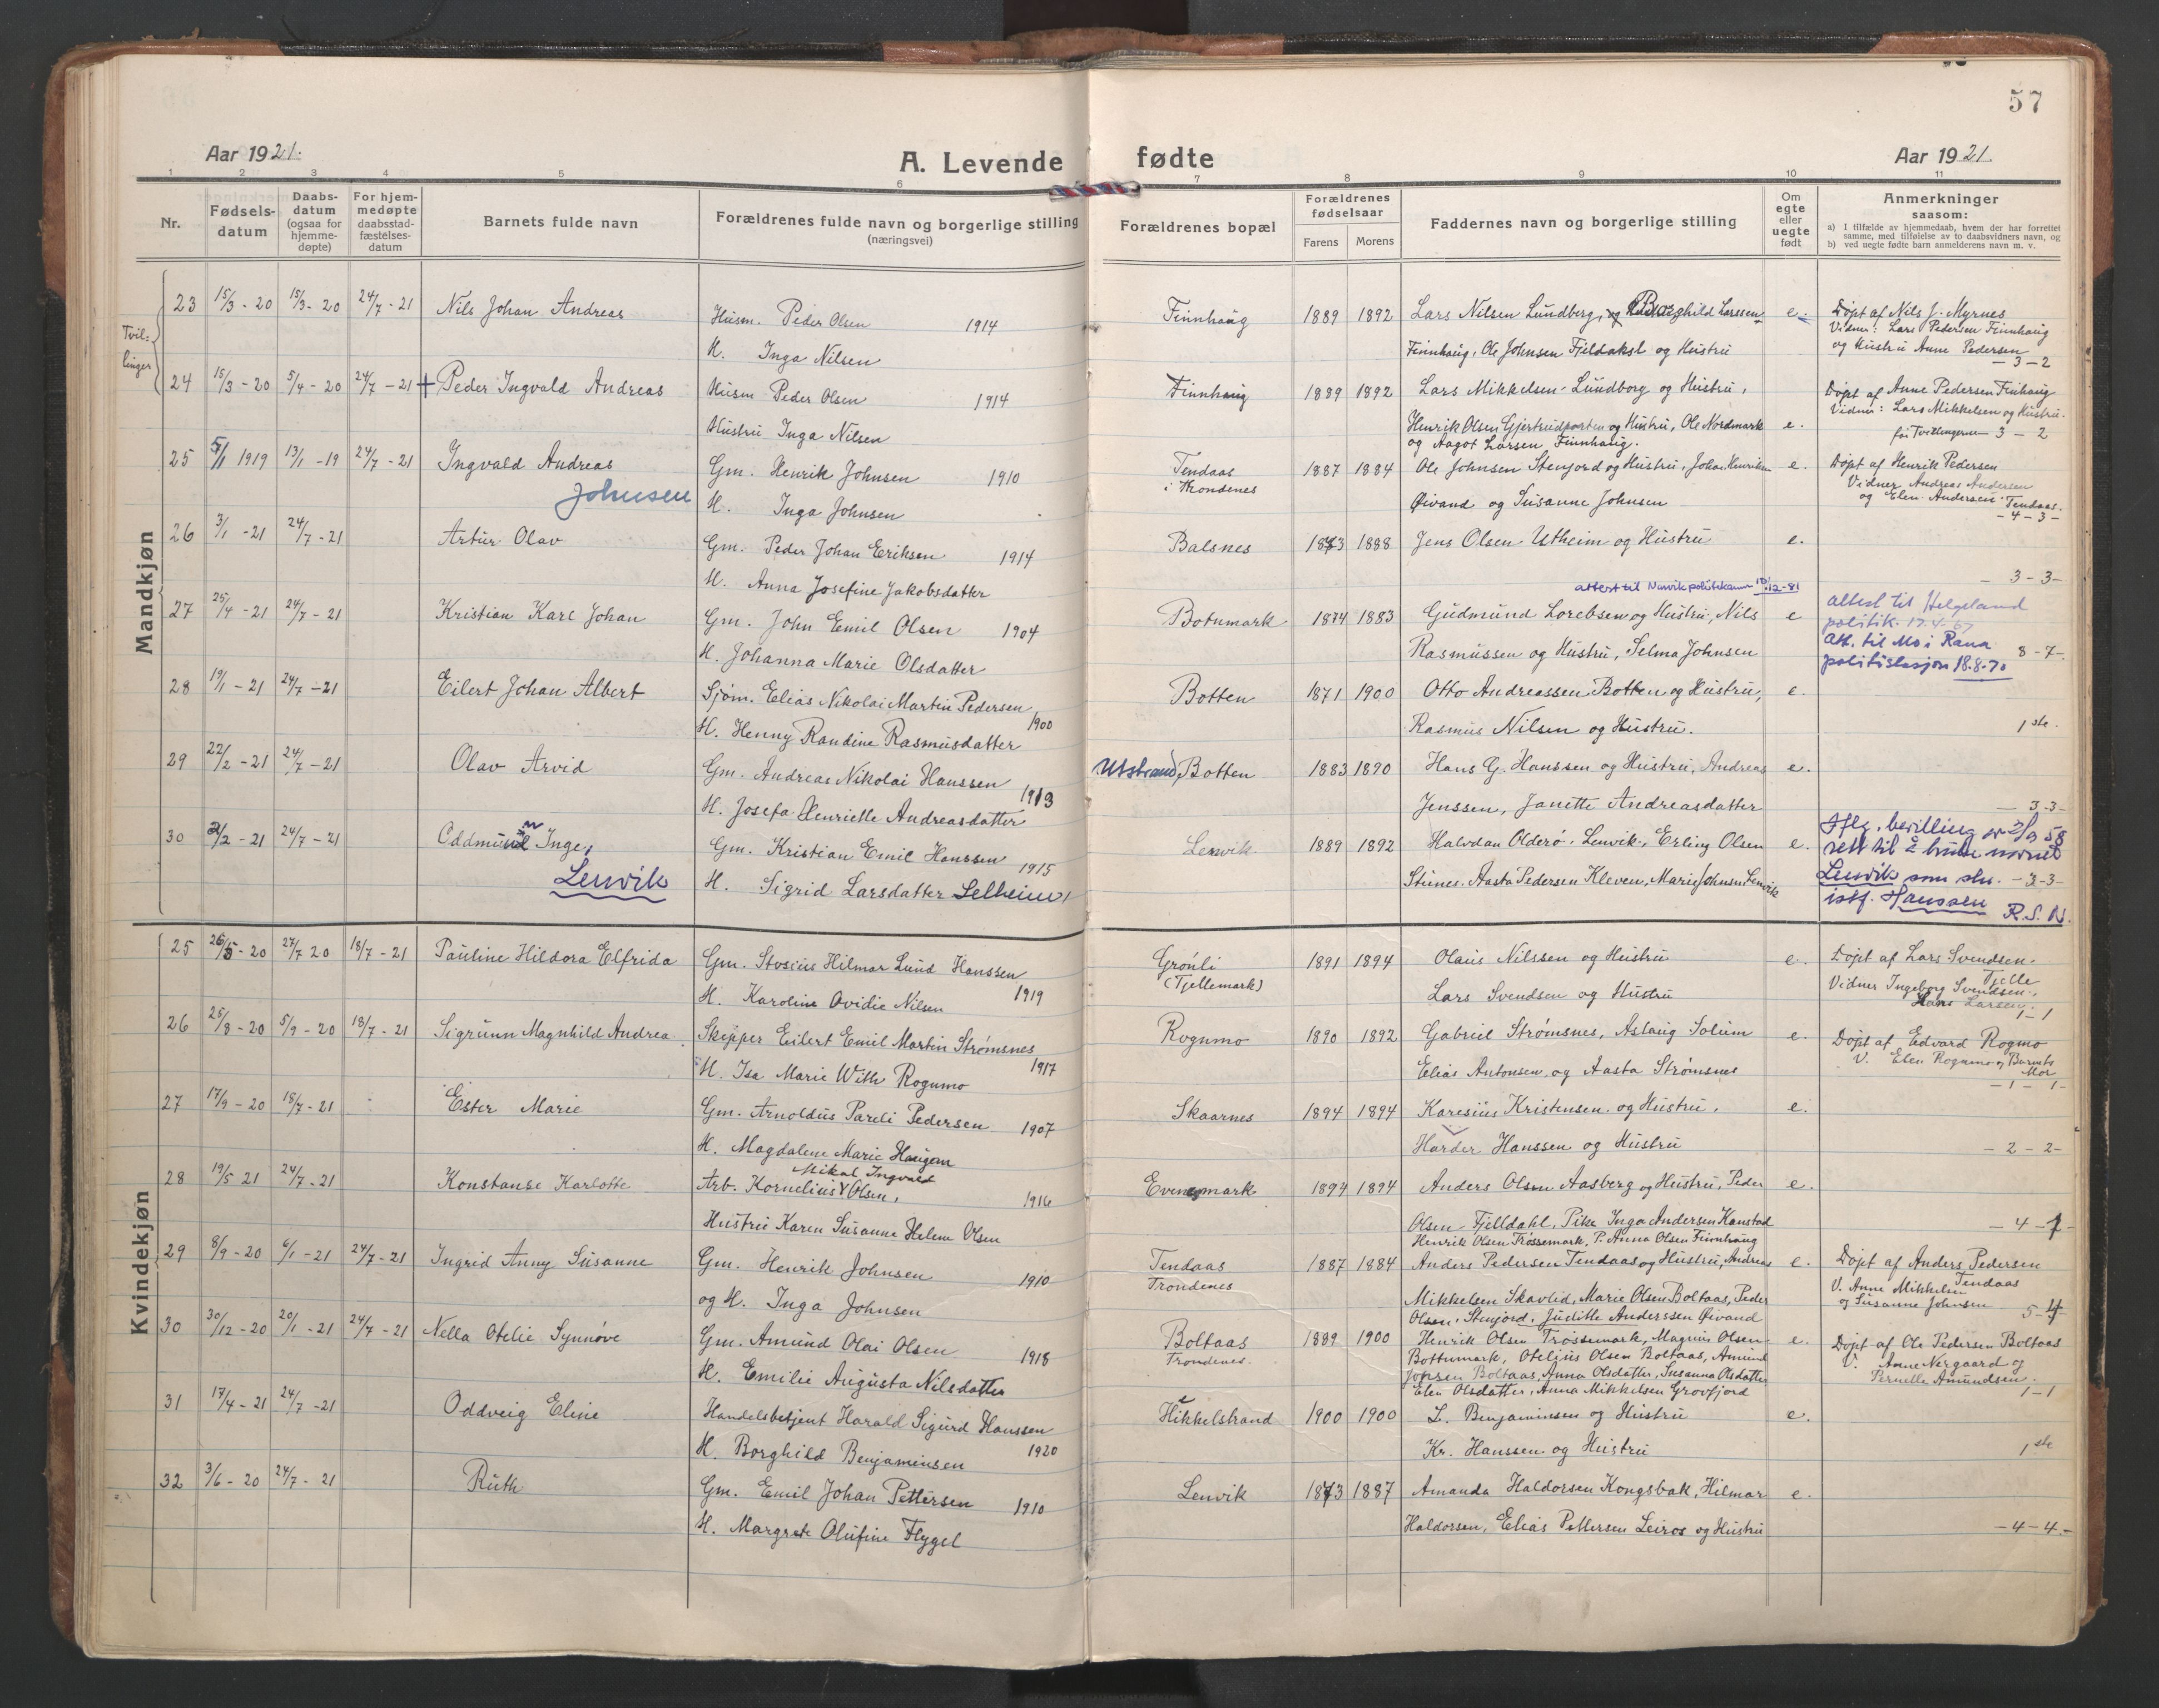 57
Aar 1921.
A. Levende fødte
Aar 1921.
1 2 3 4 5 6 7 8 9 10 11
Nr.
Fødsels-
datum
Daabs-
datum
(ogsaa for
hjemme-
døpte)
For hjem-
medøpte
daabsstad-
fæstelses-
datum
Barnets fulde navn
Forældrenes fulde navn og borgerlige stilling
(næringsvei)
Forældrenes bopæl
Forældrenes
fødselsaar
Farens Morens
Faddernes navn og borgerlige stilling
Om
egte
eller
uegte
født
Anmerkninger
saasom:
a) I tilfælde av hjemmedaab, hvem der har forrettet
samme, med tilføielse av to daabsvidners navn, og
b) ved uegte fødte barn anmelderens navn m. v.
Mandkjøn
Tvil-
linger
23 15/3 - 20 15/3 - 20 24/7 - 21 Nils Johan Andreas
Husm. Peder Olsen 1914
H. Inga Nilsen
Finnhaug 1889 1892 Lars Nilsen Lundberg, og Borghild Larssen e.
Finnhaug, Ole Johnsen Fjeldaksl og Hustru
Døpt af Nils J. Myrnes
Vidner: Lars Pedersen Finnhaug
og Hustru Anne Pedersen
- 3 - 2
24 15/3 - 20 5/4 - 20 24/7 - 21 + Peder Ingvald Andreas
Husm Peder Olsen 1914
Hustru Inga Nilsen
Finnhaug 1889 1892 Lars Mikkelsen Lundborg og Hustru,
Henrik Olsen Gjertrudporten og Hustru, Ole Nordmark e.
og Aagot Larsen Finnhaug.
Døpt af Anne Pedersen Finhaug
Vidner: Lars Mikkelsen og Hustru.
for Tvillingerne 3 - 2
25 5/1 1919 13/1 - 19 24/7 - 21 Ingvald Andreas
Johnsen
Gm. Henrik Johnsen 1910
H. Inga Johnsen
Tendaas
i Trondenes
1887 1884 Ole Johnsen Stenjord og Hustru, Johan Henriksen e.
Øivand og Susanne Johnsen
Døpt af Henrik Pedersen
Vidner Andreas Andersen
og Elen Andersen Tendaas.
- 4 - 3 -
26 3/1 - 21 24/7 - 21 Artur Olav
Gm. Peder Johan Eriksen 1914
H. Anna Josefine Jakobsdatter
Balsnes 1883 1888 Jens Olsen Utheim og Hustru e.
- 3 - 3 -
27 25/4 - 21 24/7 - 21 Kristian Karl Johan
Gm. John Emil Olsen 1904
H. Johanna Marie Olsdatter
attest til Narvik politikammer 10/12-81
Botnmark 1874 1883 Gudmund Lorebsen og Hustru, Nils e
Rasmussen og Hustru, Selma Johnsen
attest til Helgeland
politik. 17.4.67
Att. til Mo i Rana
politistasjon 18.8.70
8 - 7 -
28 19/1 - 21 24/7 - 21 Eilert Johan Albert
Sjøm. Elias Nikolai Martin Pedersen
1900
H. Henny Randine Rasmusdatter
Botten 1871 1900 Otto Andreassen Botten og Hustru, e.
Rasmus Nilsen og Hustru.
1ste.
29 22/2 - 21 24/7 - 21 Olav Arvid
Gm. Andreas Nikolai Hanssen
1913
H. Josefa Henriette Andreasdatter
Utstrand, Botten 1883 1890 Hans G. Hanssen og Hustru, Andreas e.
Jenssen, Janette Andreasdatter
- 3-3-
30 2/2 - 21 24/7 - 21 Oddmund Inge,
Lenvik
Gm. Kristian Emil Hanssen 1915
H. Sigrid Larsdatter Selheim
Lenvik 1889 1892 Halvdan Olderø, Lenvik, Erling Olsen e.
Stunes. Aasta Pedersen Kleven, Marie Johnsen Lenvik
Iflg. bevilling av 2/9 58
rett til å bruke navnet
Lenvik som sln. - 3-3-
istf. Hanssen R.S.N.
Kvindekjøn
25 26/5 - 20 27/7 20 18/7 - 21 Pauline Hildora Elfrida
Gm. Stosius Hilmar Lund Hanssen
1919
H. Karoline Ovidie Nilsen
Grønli
(Tjellemark)
1891 1894 Olaus Nilssen og Hustru e.
Lars Svendsen og Hustru
Døpt af Lars Svendsen.
Tjelle
Vidner Ingeborg Svendsen,
Hans Larsen,
1 - 1
26 25/8 - 20 5/9 - 20 18/7 - 21 Sigrunn Magnhild Andrea
Skipper Eilert Emil Martin Strømsnes
1917
H. Isa Marie With Rognmo
Rognmo 1890 1892 Gabriel Strømsnes, Aslaug Solum e.
Elias Antonsen og Aasta Strømsnes
Døpt af Edvard Rogmo
V. Elen Rognmo og Barnets
Mor
- 1 - 1-
27 17/9 - 20 18/7 - 21 Ester Marie
Gm. Arnoldus Pareli Pedersen 1907
H. Magdalene Marie Haugen
Skaarnes 1894 1894 Karesius Kristensen og Hustru, e.
Harder Hanssen og Hustru
- 2 - 2-
28 19/5 21 24/7 - 21 Konstanse Karlotte
Mikal Ingvald
Arb. Kornelius Olsen, 1916
Hustru Karen Susanne Helene Olsen
Evenesmark 1894 1894 Anders Olsen Aasberg og Hustru, Peder e.
Olsen Fjelldahl, Pike Inga Andersen Kanstad
Henrik Olsen Trøssemark, P. Anna Olsen Finnhaug
- 4 - 1-
29 8/9 - 20 6/1 - 21 24/7 - 21 Ingrid Anny Susanne
Gm. Henrik Johnsen 1910
og H. Inga Johnsen
Tendaas
Trondenes
1887 1884 Anders Pedersen Tendaas og Hustru, Andreas e.
Mikkelsen Skavlid, Marie Olsen Boltaas, Peder
Olsen, Stenjord, Judithe Anderssen Øivand
Døpt af Anders Pedersen
Tendaas
V. Anne Mikkelsen
og Susanne Johnsen
5 - 4
30 30/12 - 20 20/1 - 21 24/7 - 21 Nella Otelie Synnøve
Gm. Amund Olai Olsen 1918
H. Emilie Augusta Nilsdatter
Boltaas
Trondenes.
1889 1900 Henrik Olsen Trøssemark, Magnus Olsen e.
Bottnmark, Otelius Olsen Boltaas, Amund
Boltaas, Anna Olsdatter, Susanna Olsdatter
Elen Olsdatter, Anna Mikkelsen Grovfjord
Døpt af Ole Pedersen Boltaas
V. Anne Nergaard og
Pernelle Amundsen.
1-1
31 17/4 - 21 24/7 - 21 Oddveig Eline
Handelsbetjent Harald Sigurd Hanssen
1920
H. Borghild Benjaminsen
Hikkelstrand 1900 1900 L. Benjaminsen og Hustru e.
Kr. Hanssen og Hustru
1ste
32 3/6 - 20 24/7 - 21 Ruth
Gm. Emil Johan Pettersen 1910
H. Margrete Olufine Flygel
Lenvik 1883 1887 Amanda Haldorsen Kongsbak, Hilmar e.
Haldorsen, Elias Pettersen Leiros og Hustru
- 4 - 4.-